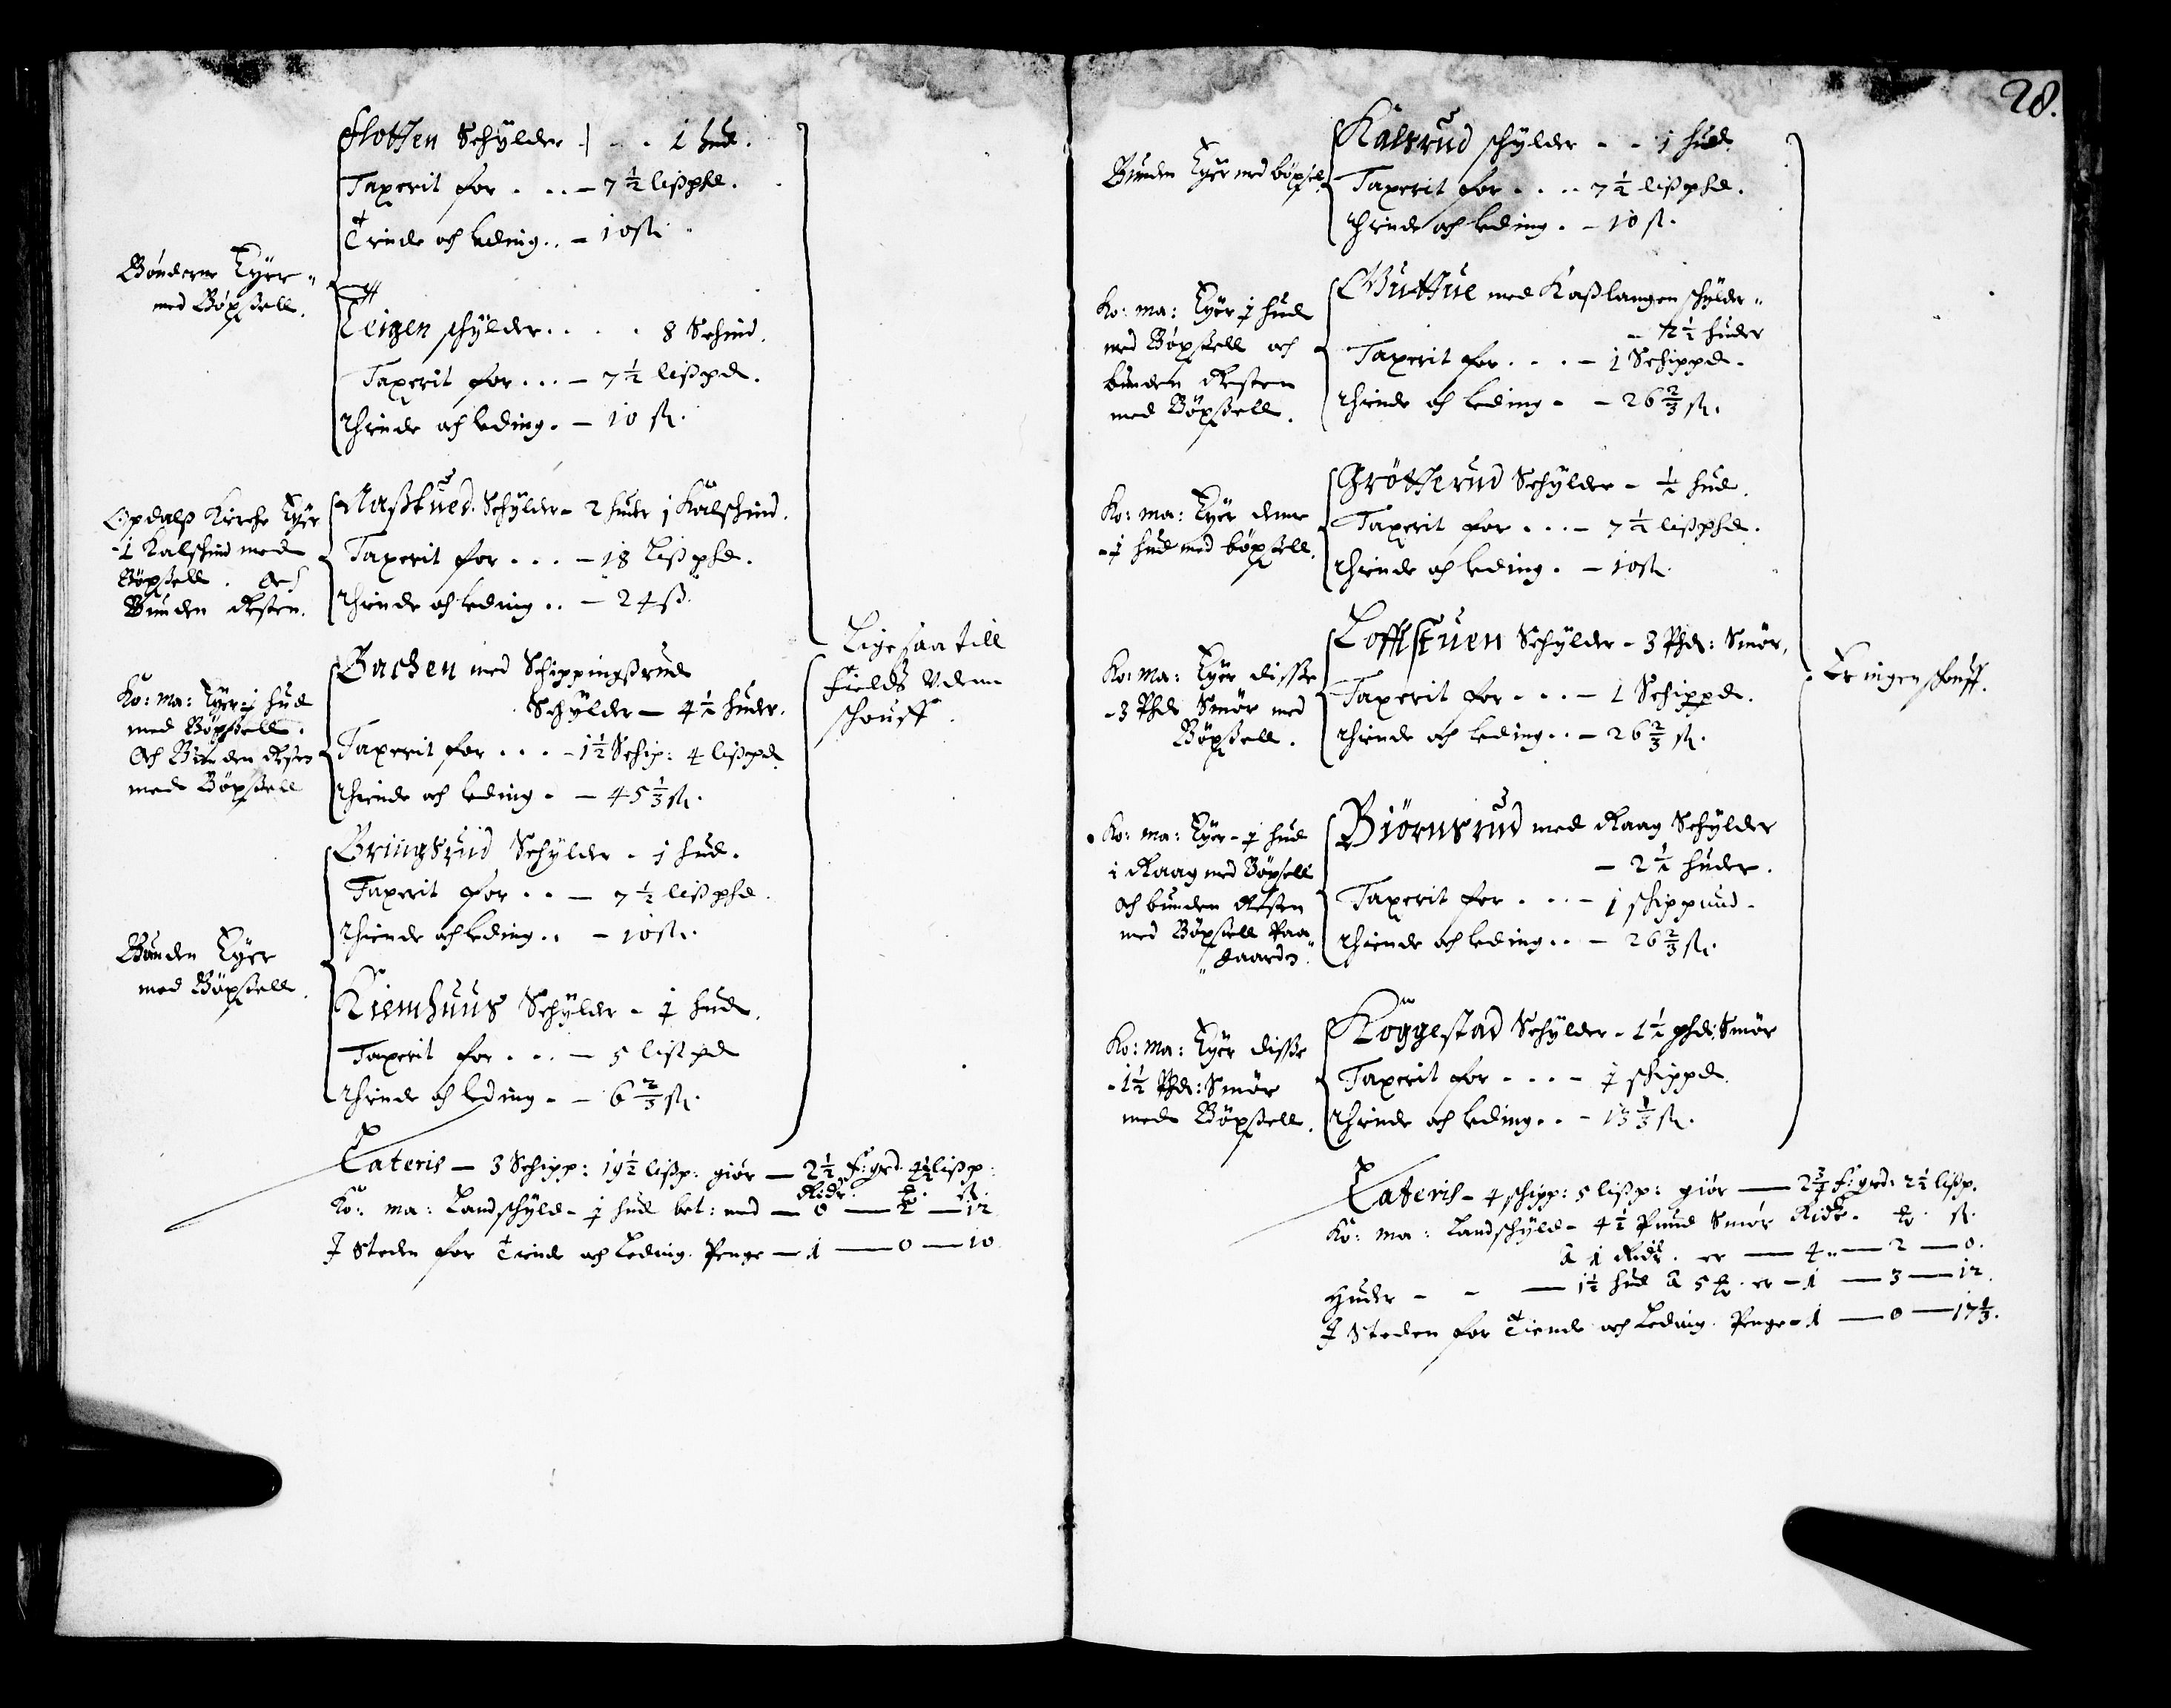 Flotten Schÿlder - . . 1 hud.
Taxerit for . . . - 7 1/2 lißphd.
Tiende och leding . . - 10 ß.
Bönderne Eÿer
med Böxßell.
Teigen schÿlder . . . . 8 Schind.
Taxerit for . . . - 7 1/2 lißpd.
Thiende och leding . - 10 ß.
Opdalß Kirche Eÿer
- 1 Kalfschind med
Böxßell. Och
Bunden Resten.
Naßtued Schÿlder - 2 huder 1 Kalfschind.
Taxerit for . . . - 18 Lißphd.
Thiende och leding . . - 24 ß.
Ko: Ma: Eÿer - 1 hud
med Böxßell.
Och Bunden Resten
med Böxßell
Bachen med Schippingßrud
Schÿlder - 4 1/2 huder.
Taxerit for . . . - 1 1/2 Schip: 4 lißpd.
Thiende och leding . - 45 1/3 ß.
Bringßrud Schÿlder - 1 hud.
Taxerit for . . - 7 1/2 lißphd.
Thiende och leding . . - 10 ß.
Bunden Eÿer
med Böxßell.
Kiemhuus Schÿlder - 1 hud.
Taxerit for . . . - 5 lißpd
Thiende och leding . - 6 2/3 ß.
Lige saa till
Fields Udenn
schouff.
Lateris - 3 Schipp: 19 1/2 lißp: giör - 2 1/2 f: grd. 4 1/2 lißp:
Rdr. ß.
Ko: Ma: Landschÿld - 1 hud bet: med - 0 - 12
J Steden for Tiende och Leding Penge - 1 - 0 - 10
28.
Bunden Eÿer med böxßel
Kalsrud schÿlder - - 1 hud
Taxerit for . . . . 7 1/2 lißphd.
Thiende och leding . - 10 ß.
Ko: ma: Eÿer 1 hud
med Böxßell och
bunden Resten
med Böxßell.
Guttue med Kaßlangen schÿlder
- 2 1/2 huder
Taxerit for . . . - 1 Schippd.
Thiende och leding - - 26 2/3 ß.
Ko: ma: Eÿer denne
- 1 hud med böxßell.
Gröttterud Schÿlder - 1/2 hud.
Taxerit for . . . - 7 1/2 lißphd.
Thiende och leding . - 10 ß.
Ko: Ma: Eÿer disße
- 3 Phd Smör med
Böxßell.
Lofftstuen Schÿlder - 3 Phd: Smör.
Taxerit for . . . - 1 Schippd.
Thiende och leding . . - 26 2/3 ß.
Ko: ma: Eÿer - 1 hud
i Raag med Böxsell
och bunden Resten
med Böxßell Paa
Gaarden.
Biörnsrud med Raag Schÿlder
- 2 1/2 huder.
Taxerit for . . . - 1 schippund.
Thiende och leding . . - 26 2/3 ß.
Ko: ma: Eÿer disße
- 1 1/2 Phd: Smör
med Böxßell.
Köggestad Schÿlder - 1 1/2 phd: Smör
Taxerit for . . . . - 1 schippd.
Thiende och leding . . - 13 1/3 ß.
Er ingen schouff.
Lateris - 4 schipp: 5 lißp: giör - 2 3/4 f: grd: 2 1/2 lißp.
Ko: ma: Landschÿld - 4 1/2 Pund Smör Rdr. ß.
à 1 Rdr. er - 4 - 2 - 0.
Huder - - - 1 1/2 hud à 5 er - 1 - 3 - 12.
J Steden for Tiende och Leding Penge - 1 - 0 - 17 1/3.